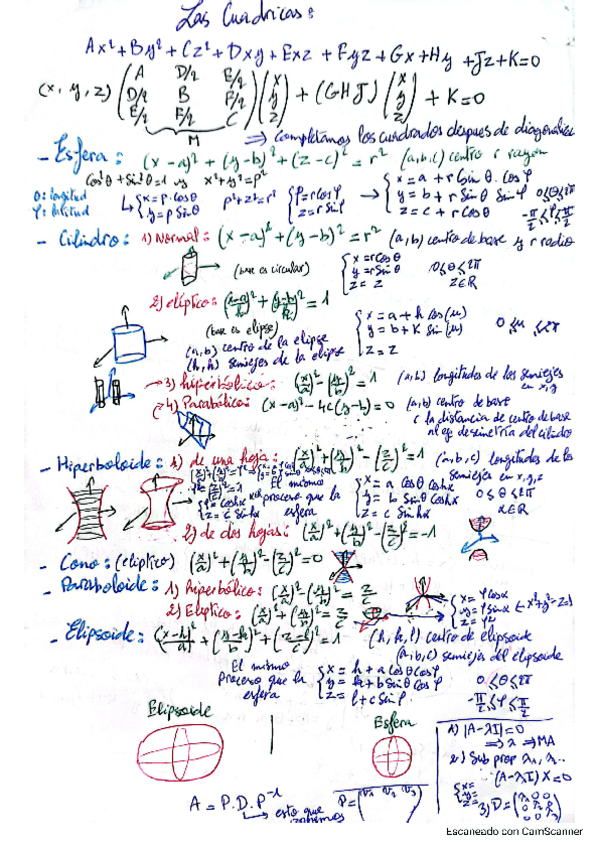 Las Cuadricas:
Ax²+By²+Cz²+Dxy+Exz+Fyz+Gx+Hy+Jz+K=0
(x, y, z) (A D/2 E/2 (x
D/2 B F/2 y + (GHJ) (x y z) + K=0
E/2 F/2 C) z)
M ⇒ Completamos los cuadrados despues de diagonalizar
- Esfera: (x-a)²+(y-b)²+(z-c)²=r² (a,b,c) centro r rayon
Cos²θ+Sin²θ=1 y x²+y²=ρ²
θ: longitud
φ: latitud
{x=ρ.cosθ
y=ρ Sinθ
ρ²+z²=r²
{ρ=rcosφ
z=rSinφ
{x=a+r
y=b+r Sinθ Sinφ 0≤θ≤2π
z=c+r -π/2≤φ≤π/2
- Cilindro: 1) Normal: (x-a)²+(y-b)²=r² (a,b) centro de base y r radio
(base es circular)
{x=rcosθ
y=rSinθ
z=z
0≤θ≤2π
z∈R
2) elíptico: (x-a/h)²+(y-b/k)²=1
(base es elipse)
(a,b) centro de la elipse
(h,k) semiejes de la elipse
{x=a+h cos(u)
y=b+k Sin(u)
z=z
0≤u≤2π
→3) hiperbólico: (x/a)²-(y/b)²=1 (a,b) longitudes de los semiejes
en x,y
→4) Parabólico: (x-a)²-4c(y-b)=0 (a,b) centro de base
c la distancia de centro de base
al eje de simetría del cilindro
- Hiperboloide: 1) de una hoja: (x/a)²+(y/b)²-(z/c)²=1 (a,b,c) longitudes de los
semiejes en x,y,z
El mismo
proceso que la
esfera
{x=a cosθ coshα
y=b Sinθ coshα
z=c Sinhα
0≤θ≤2π
α∈R
2) de dos hojas: (x/a)²+(y/b)²-(z/c)²=-1
- Cono: (elíptico) (x/a)²+(y/b)²-(z/c)²=0
- Paraboloide: 1) hiperbólico: (x/a)²-(y/b)²=z/c
2) Elíptico: (x/a)²+(y/b)²=z/c
- Elipsoide: (x-h/a)²+(y-k/b)²+(z-l/c)²=1 (h,k,l) centro de elipsoide
(a,b,c) semiejes del elipsoide
El mismo
proceso que la
esfera
{x=h+a cosθcosφ
y=k+b Sinθ cosφ
z=l+c Sinφ
0≤θ≤2π
-π/2≤φ≤π/2
Elipsoide
Esfera
1) |A-λI|=0
⇒ λ ⇒ MA
2) Sub prop λ₁, λ₂..
(A-λI)X=0
3) D=
A = P.D.P⁻¹
→ esto que
P=(V₁ V₂ V₃)
Escaneado con CamScanner